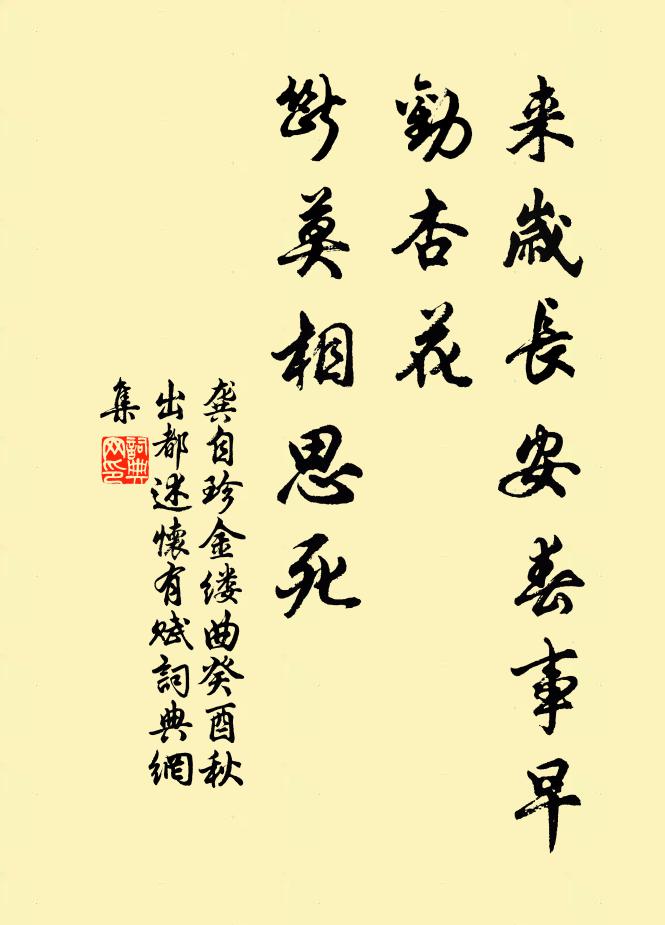 来歲長安春事早
勸杏花
斷莫相思死
龔自珍金缕曲癸酉秋
出都述懷有赋詞典網
集
詞典
网印